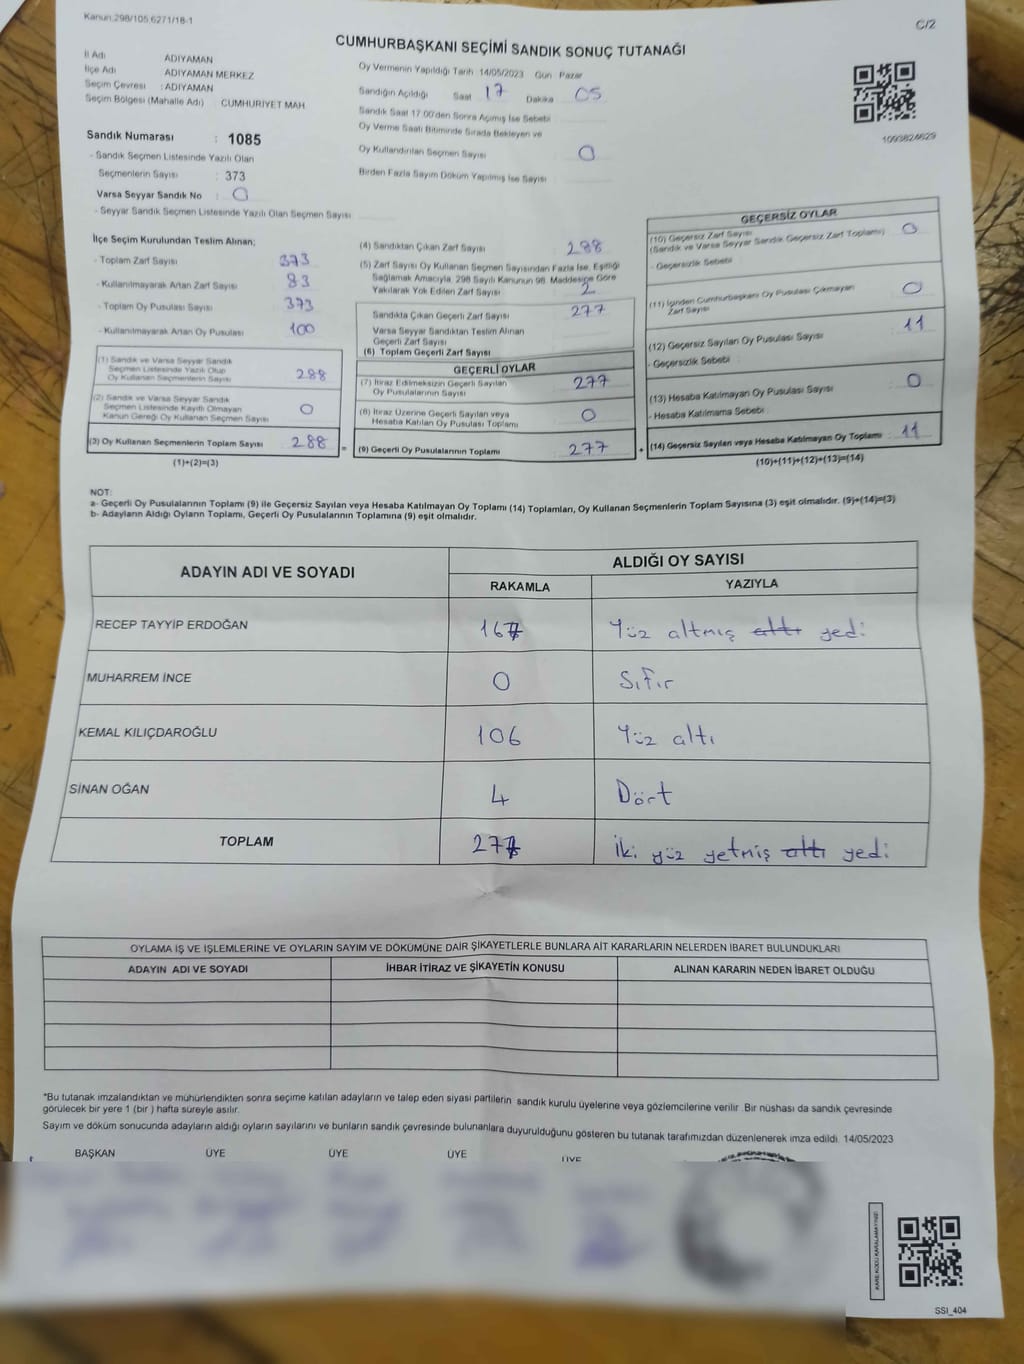 Kanun:298/105,6271/18-1
C/2
CUMHURBAŞKANI SEÇİMİ SANDIK SONUÇ TUTANAĞI
İl Adı ADIYAMAN
İlçe Adı ADIYAMAN MERKEZ
Seçim Çevresi : ADIYAMAN
Seçim Bölgesi (Mahalle Adı) : CUMHURİYET MAH
Sandık Numarası : 1085
- Sandık Seçmen Listesinde Yazılı Olan
Seçmenlerin Sayısı : 373
Varsa Seyyar Sandık No : 0
- Seyyar Sandık Seçmen Listesinde Yazılı Olan Seçmen Sayısı
Oy Vermenin Yapıldığı Tarih 14/05/2023 Gün : Pazar
Sandığın Açıldığı Saat 17 Dakika 05
Sandık Saat 17.00'den Sonra Açımış İse Sebebi
Oy Verme Saati Bitiminde Sırada Bekleyen ve
Oy Kullandırılan Seçmen Sayısı 0
Birden Fazla Sayım Döküm Yapılmış İse Sayısı
İlçe Seçim Kurulundan Teslim Alınan;
- Toplam Zarf Sayısı 373
- Kullanılmayarak Artan Zarf Sayısı 83
- Toplam Oy Pusulası Sayısı 373
- Kullanılmayarak Artan Oy Pusulası 100
(1) Sandık ve Varsa Seyyar Sandık
Seçmen Listesinde Yazılı Olup
Oy Kullanan Seçmenlerin Sayısı 288
(2) Sandık ve Varsa Seyyar Sandık
Seçmen Listesinde Kayıtlı Olmayan
Kanun Gereği Oy Kullanan Seçmen Sayısı 0
(3) Oy Kullanan Seçmenlerin Toplam Sayısı 288
(1)+(2)=(3)
=
(4) Sandıktan Çıkan Zarf Sayısı 288
(5) Zarf Sayısı Oy Kullanan Seçmen Sayısından Fazla İse, Eşitliği
Sağlamak Amacıyla, 298 Sayılı Kanunun 98. Maddesine Göre
Yakılarak Yok Edilen Zarf Sayısı 2
Sandıkta Çıkan Geçerli Zarf Sayısı 277
Varsa Seyyar Sandıktan Teslim Alınan
Geçerli Zarf Sayısı
(6) Toplam Geçerli Zarf Sayısı
GEÇERLİ OYLAR
(7) İtiraz Edilmeksizin Geçerli Sayılan
Oy Pusulalarının Sayısı 277
(8) İtiraz Üzerine Geçerli Sayılan veya
Hesaba Katılan Oy Pusulası Toplamı 0
(9) Geçerli Oy Pusulalarının Toplamı 277
+
1093824629
GEÇERSİZ OYLAR
(10) Geçersiz Zarf Sayısı 0
(Sandık ve Varsa Seyyar Sandık Geçersiz Zarf Toplamı)
- Geçersizlik Sebebi
(11) İçinden Cumhurbaşkanı Oy Pusulası Çıkmayan
Zarf Sayısı 0
(12) Geçersiz Sayılan Oy Pusulası Sayısı 11
- Geçersizlik Sebebi :
(13) Hesaba Katılmayan Oy Pusulası Sayısı 0
- Hesaba Katılmama Sebebi :
(14) Geçersiz Sayılan veya Hesaba Katılmayan Oy Toplamı : 11
(10)+(11)+(12)+(13)=(14)
NOT:
a- Geçerli Oy Pusulalarının Toplamı (9) ile Geçersiz Sayılan veya Hesaba Katılmayan Oy Toplamı (14) Toplamları, Oy Kullanan Seçmenlerin Toplam Sayısına (3) eşit olmalıdır. (9)+(14)=(3)
b- Adayların Aldığı Oyların Toplamı, Geçerli Oy Pusulalarının Toplamına (9) eşit olmalıdır.
ADAYIN ADI VE SOYADI ALDIĞI OY SAYISI
RAKAMLA YAZIYLA
RECEP TAYYİP ERDOĞAN 167 Yüz altmış altı yedi
MUHARREM İNCE 0 Sıfır
KEMAL KILIÇDAROĞLU 106 Yüz altı
SİNAN OĞAN 4 Dört
TOPLAM 277 İki yüz yetmiş altı yedi
OYLAMA İŞ VE İŞLEMLERİNE VE OYLARIN SAYIM VE DÖKÜMÜNE DAİR ŞİKAYETLERLE BUNLARA AİT KARARLARIN NELERDEN İBARET BULUNDUKLARI
ADAYIN ADI VE SOYADI İHBAR İTİRAZ VE ŞİKAYETİN KONUSU ALINAN KARARIN NEDEN İBARET OLDUĞU
*Bu tutanak imzalandıktan ve mühürlendikten sonra seçime katılan adayların ve talep eden siyasi partilerin sandık kurulu üyelerine veya gözlemcilerine verilir. Bir nüshası da sandık çevresinde
görülecek bir yere 1 (bir ) hafta süreyle asılır.
Sayım ve döküm sonucunda adayların aldığı oyların sayılarını ve bunların sandık çevresinde bulunanlara duyurulduğunu gösteren bu tutanak tarafımızdan düzenlenerek imza edildi. 14/05/2023
BAŞKAN ÜYE ÜYE ÜYE ÜYE
KARE KODU KARALAMAYINIZ!
SSI_404